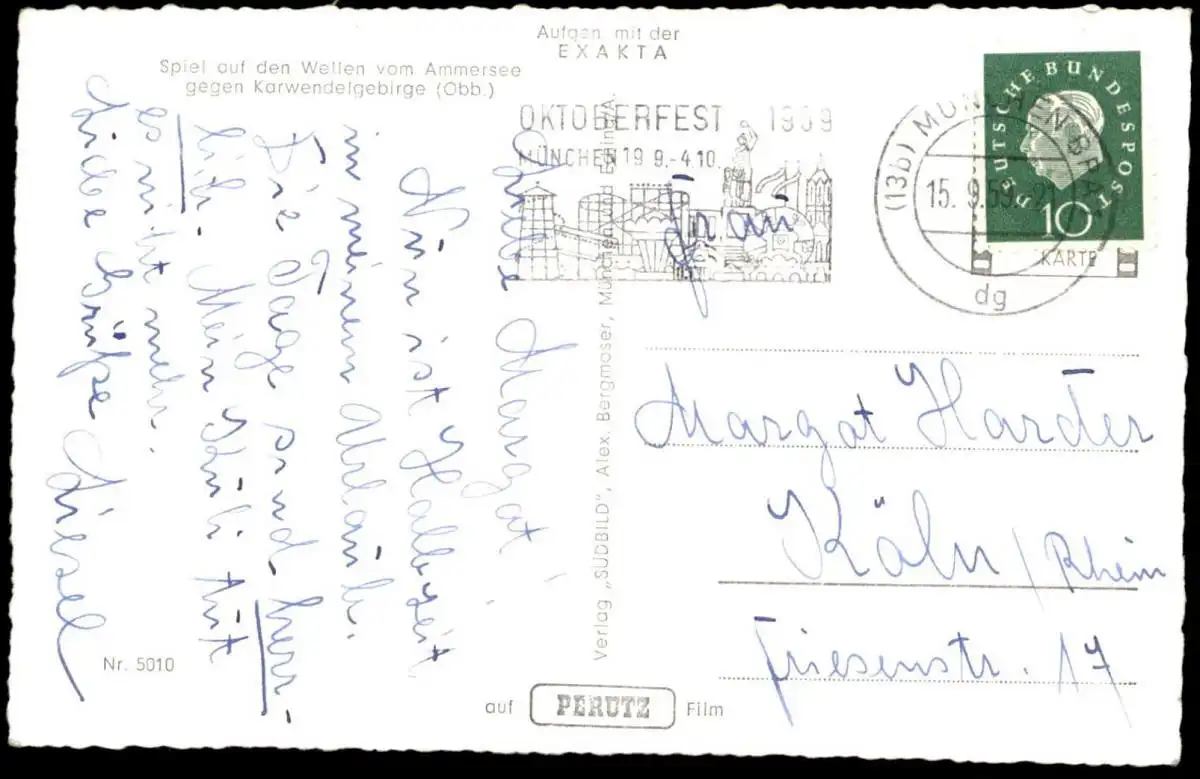 Aufgen. mit der
EXAKTA
Spiel auf den Wellen vom Ammersee
gegen Karwendelgebirge (Obb.)
OKTOBERFEST 1959
MÜNCHEN 19 9.-4.10.
(13b) MÜNCHEN BPA
15. 9.59
dg
DEUTSCHE BUNDESPOST
10
KARTE
Liebe Margat!
Nun ist Halbzeit
in meinem Urlaub.
Die Tage sind herr-
lich. Mein Knie tut
es nicht mehr.
Liebe Grüße Liesel
Frau
Margat Harder
Köln / Rhein
Friesenstr. 17
Verlag „SÜDBILD", Alex. Bergmoser, München und Esting/A.
Nr. 5010
auf PERUTZ Film